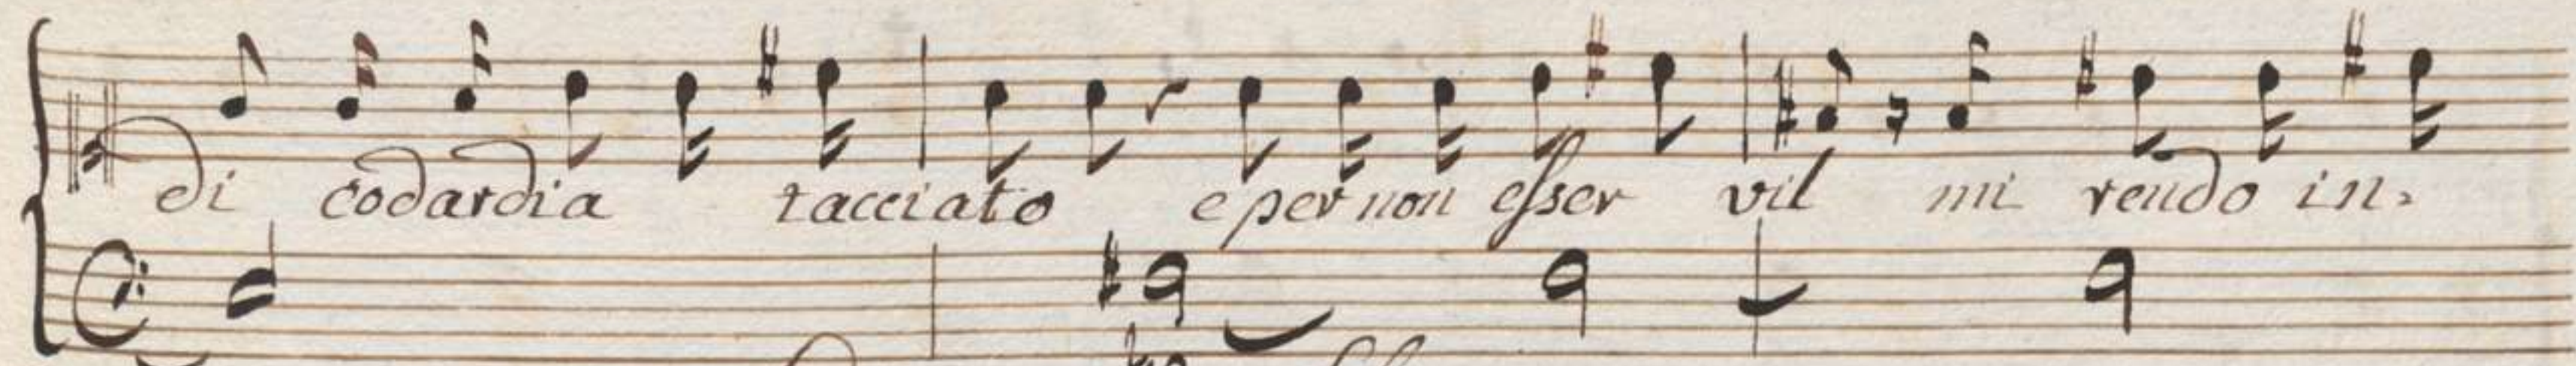 di codardia tacciato e per non esser vil mi rendo in.